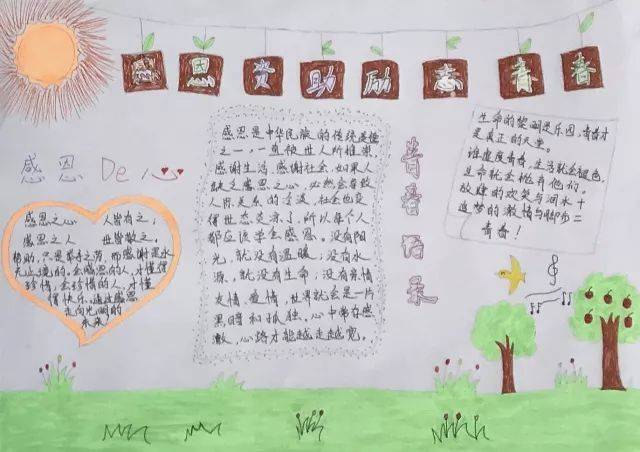 感恩资助励志青春
感恩De心
感恩之心 人皆有之,
感恩之人 世皆敬之。
帮助,只是举手之劳,而感谢是永
无止境的。会感恩的人,才懂得
珍惜,会珍惜的人,才懂
得快乐。
走向光明的
未来!
感恩是中华民族的传统美德
之一,一直被世人所推崇。
感谢生活,感谢社会,如果人
缺乏感恩之心,必然会导致
人际关系的冷漠,社会也变
得世态炎凉了,所以每个人
都应该学会感恩。没有阳
光,就没有温暖;没有水
源,就没有生命;没有亲情
友情、爱情,世界就会是一片
黑暗和孤独。心中常存感
激,心路才能越走越宽。
青春语录
生命的黎明是乐园,青春才
是真正的天堂。
谁虚度青春,生活就会褪色,
生命就会抛弃他们。
放肆的欢笑与泪水十
追梦的激情与脚步=
青春!